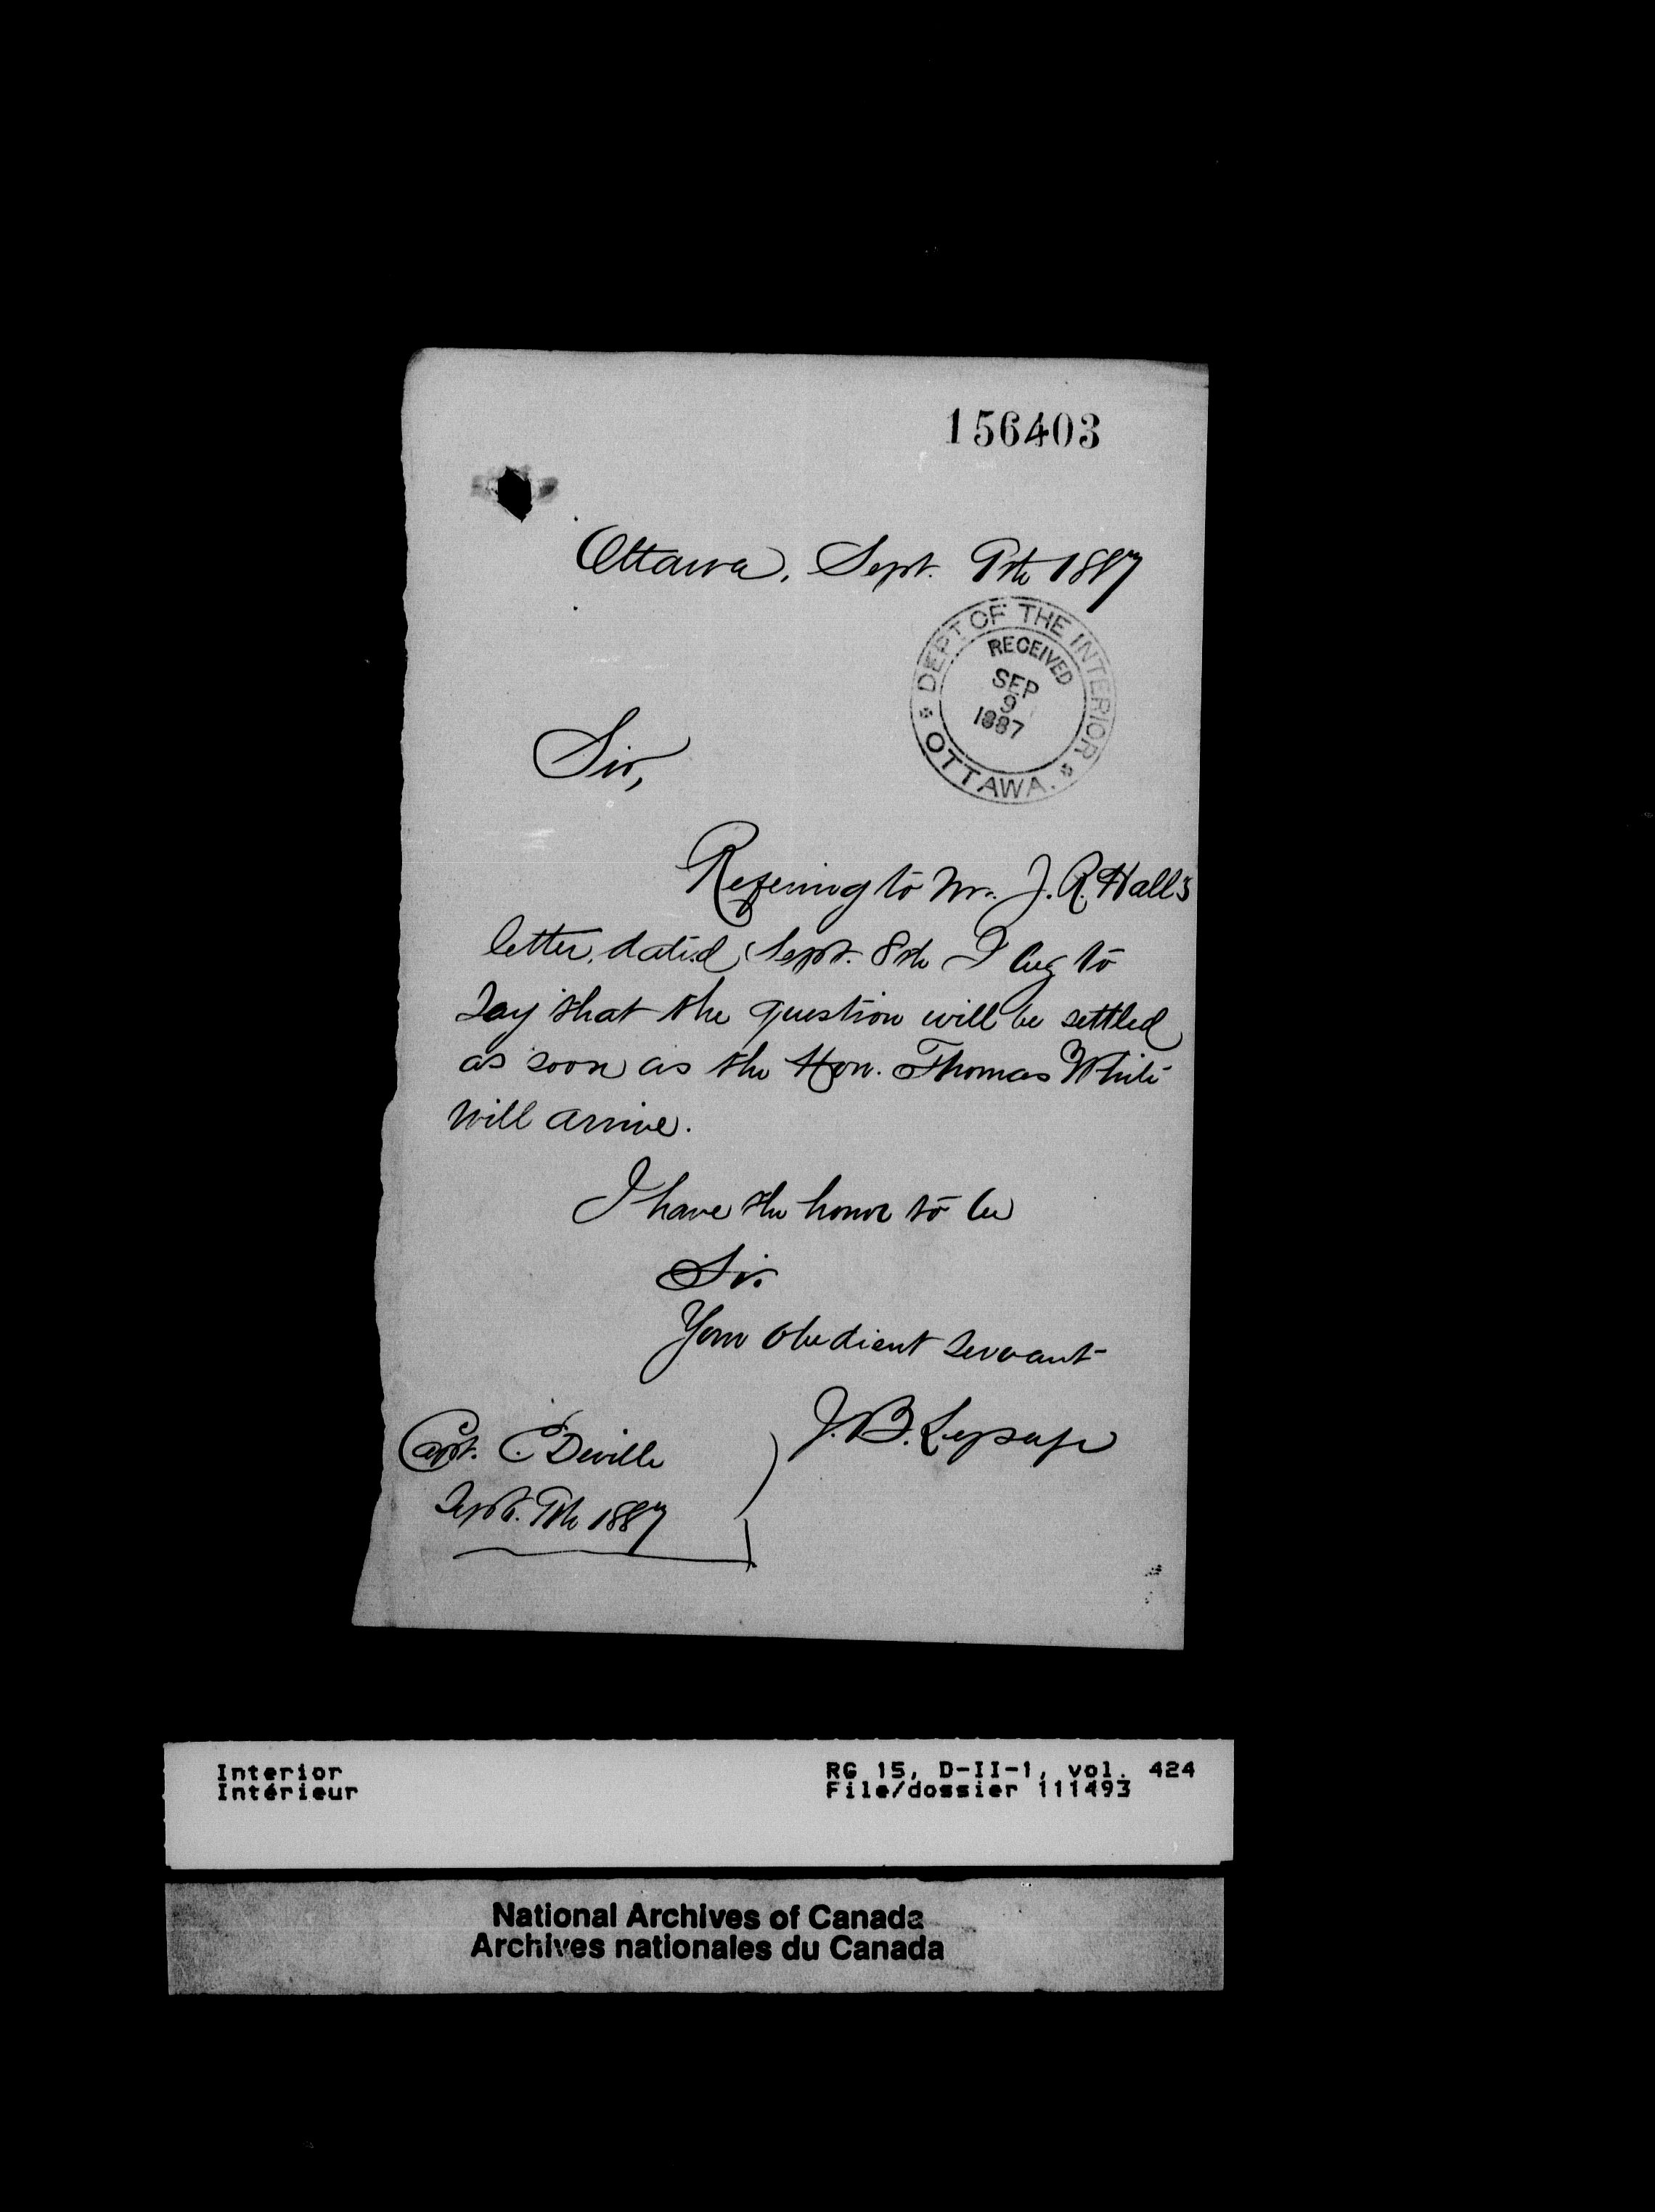 156403
Ottawa, Sept. 9th 1887
DEPT OF THE INTERIOR
RECEIVED
SEP
9
1887
OTTAWA.
Sir,
Refering to Mr. J. R. Hall's
letter, dated Sept. 8th I beg to
say that the question will be settled
as soon as the Hon. Thomas White
will arrive.
I have the honor to be
Sir.
Your obedient servant
J. B.
Capt. E Deville
Sept. 9th 1887
Interior
Intérieur
RG 15, D-II-1, vol. 424
File/dossier 111493
National Archives of Canada
Archives nationales du Canada